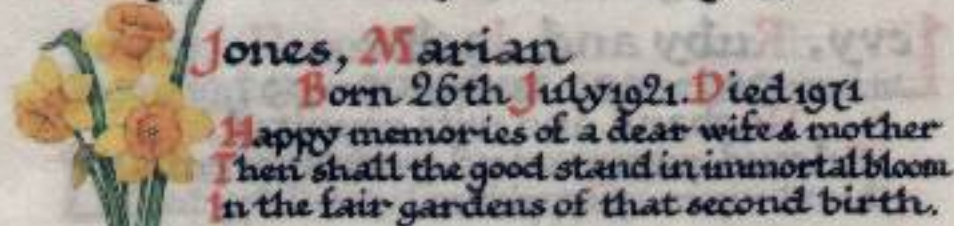 Jones, Marian
Born 26th July 1921. Died 1971
Happy memories of a dear wife & mother
Then shall the good stand in immortal bloom
In the fair gardens of that second birth.